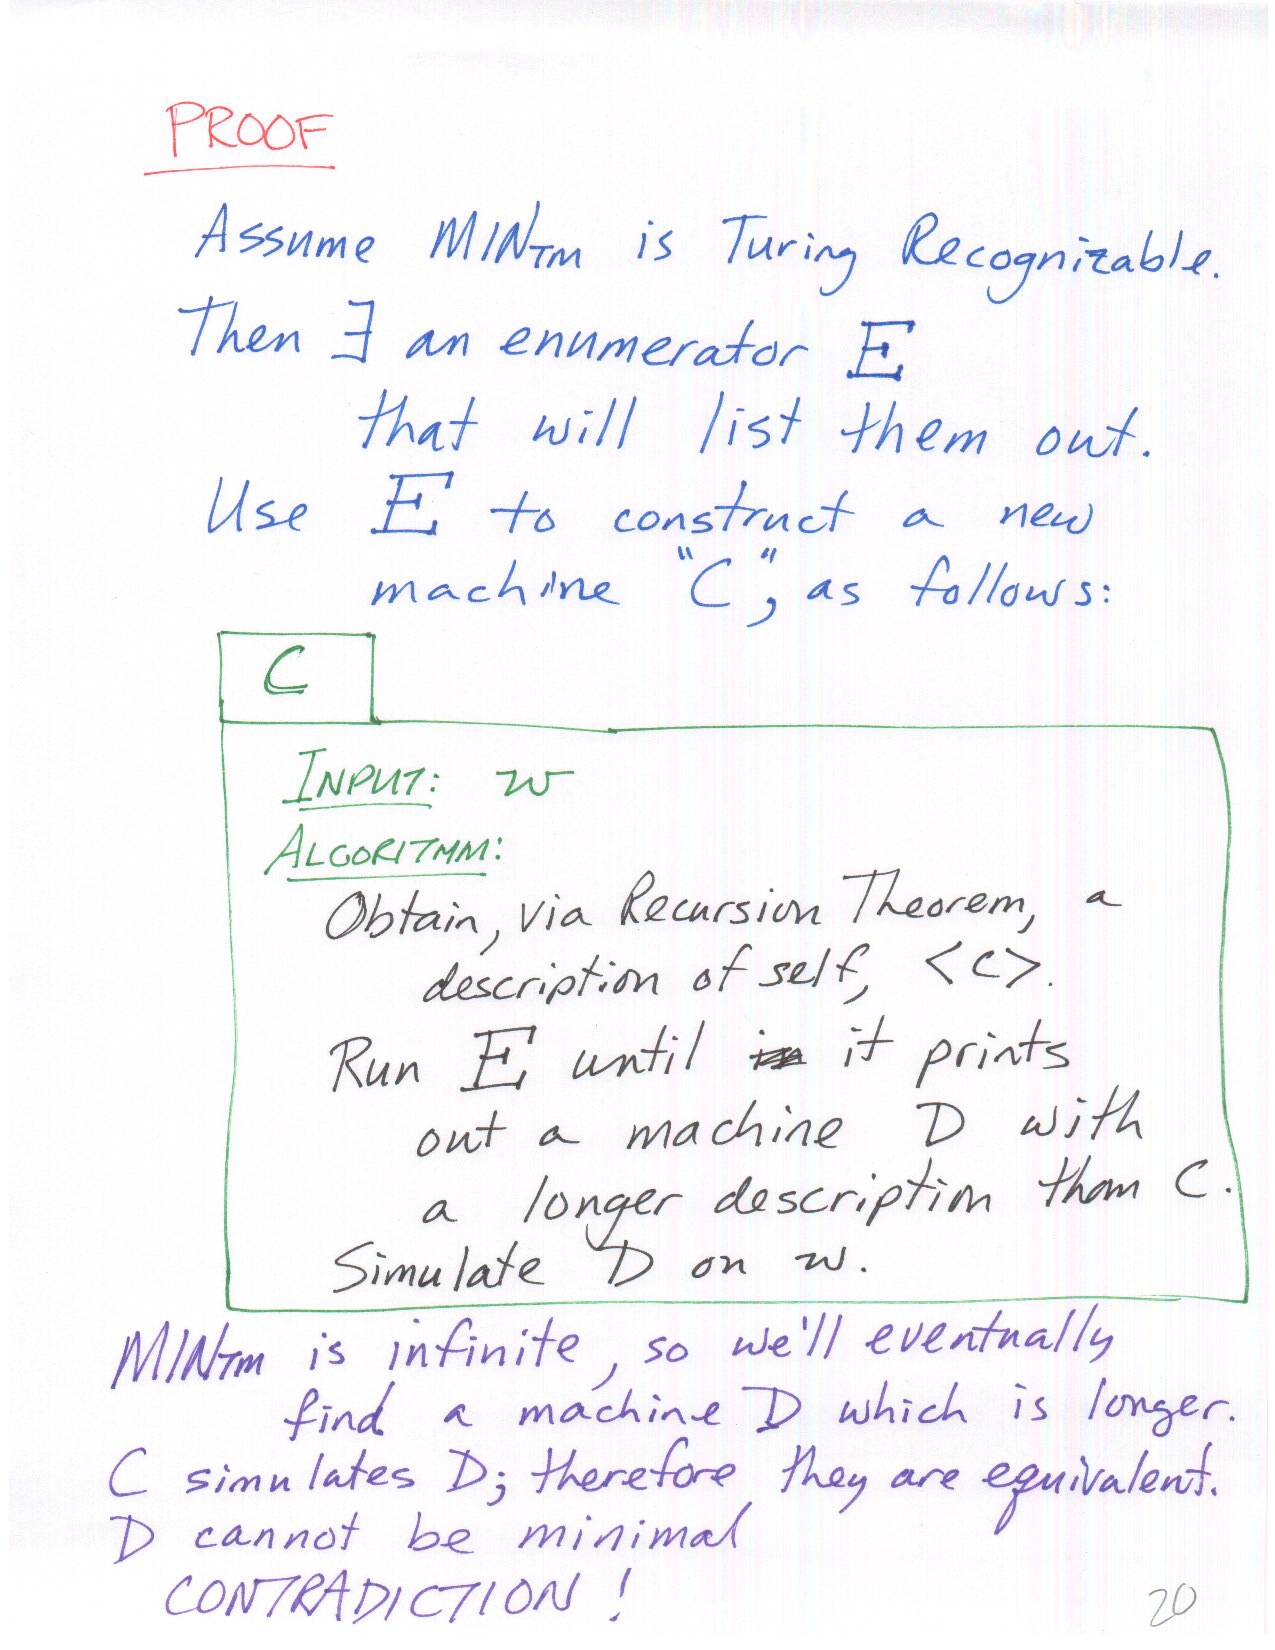 PROOF
Assume MINTM is Turing Recognizable.
Then ∃ an enumerator E
that will list them out.
Use E to construct a new
machine "C", as follows:
C
INPUT: w
ALGORITHM:
Obtain, via Recursion Theorem, a
description of self, <C>.
Run E until it prints
out a machine D with
a longer description than C.
Simulate D on w.
MINTM is infinite, so we'll eventually
find a machine D which is longer.
C simulates D; therefore they are equivalent.
D cannot be minimal
CONTRADICTION!
20